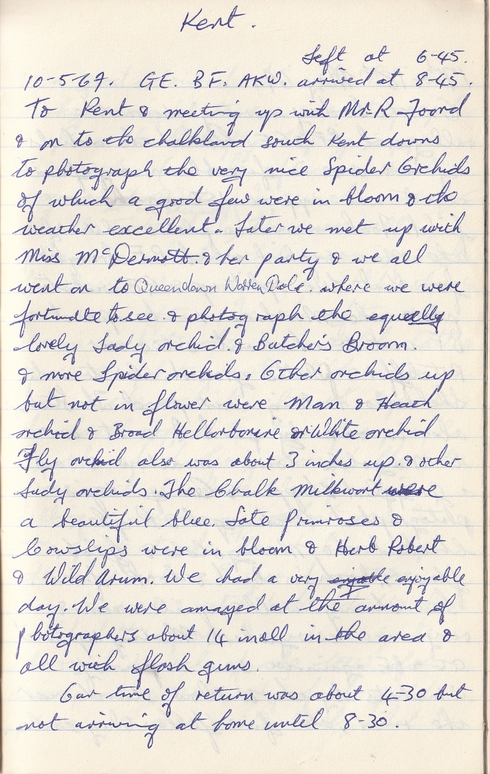 Kent.
Left at 6-45.
10-5-69. GE. BF. AKW. arrived at 8-45.
To Kent & meeting up with Mr. R Foord
& on to the chalkland south Kent downs
to photograph the very nice Spider Orchids
of which a good few were in bloom & the
weather excellent. Later we met up with
Miss McDermott. & her party & we all
went on to Queendown Warren where we were
fortunate to see & photograph the equally
lovely Lady orchid. & Butcher's Broom.
& more Spider orchids. Other orchids up
but not in flower were Man & Heath
orchid & Broad Hellorborine or White orchid
Fly orchid also was about 3 inches up. & other
Lady orchids. The Chalk Milkwort were
a beautiful blue. Late primroses &
Cowslips were in bloom & Herb Robert
& Wild Arum. We had a very enjoyable
day. We were amazed at the amount of
photographers about 14 in all in the area &
all with flash guns.
Our time of return was about 4-30 but
not arriving at home until 8-30.